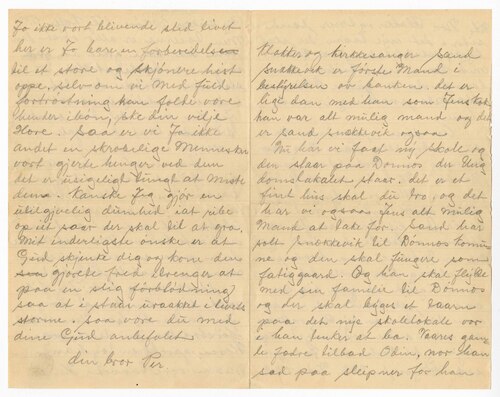 Jo ikke vort blivende sted livet
her er Jo bare en forberedelse
til et store og skjönere hist
oppe. selv om vi med fuld
fortröstning kan folde vore
hender i bön, ske din vilje
Herre. Saa er vi Jo ikke
andet en skröbelige Mennesker
vort hjerte henger ved dem
det er usigeligt tungt at miste
dem. Kanske Jeg gjör en
utilgivelig dumhed i at ribe
op et saar der skal til at gro.
Mit inderligste onske er at
Gud skjenke dig og kone den
gjorte fred Drenger at
paa en slig forbildning
saa at i staar urokket i livets
storme. Saa vore du med
dine Gud anbefalet
din bror Per
Klokker og kirkesanger Sand
Snekkevik er förste Mand i
bestyrelsen ov banken. det er
lige dan med han som Jens
han var alt mulig mand og det
er Sand Snekkevik ogsaa
Nu har vi faat ny skole og
den staar paa Dönnes der Ung
domslokalet staar. det er et
fint hus skal du tro, og det
har vi ogsaa Jens alt mulig
Mand at takke for. Sand har
solt Snekkevik til Dönnes komu
ne og den skal fungere som
fatiggaard. Og han skal flytte
med sin familie til Dönnes
og der skal bygges et
paa det nye skolelokale vor
i han tenker at bo. Vaares gam
le fedre tilbad Odin, nor han
sad paa sleipner for han